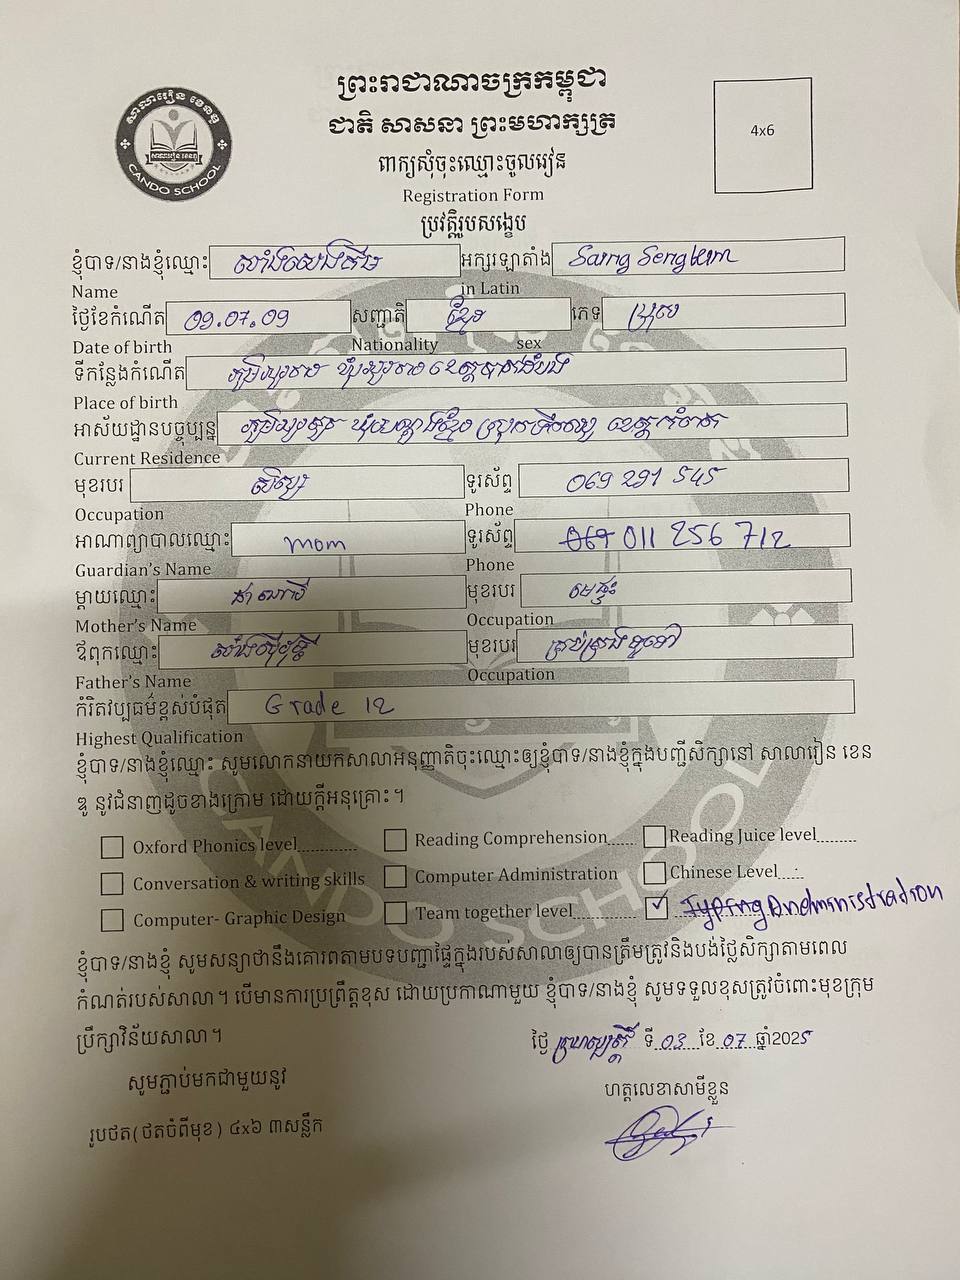 ព្រះរាជាណាចក្រកម្ពុជា
ជាតិ សាសនា ព្រះមហាក្សត្រ
ពាក្យសុំចុះឈ្មោះចូលរៀន
Registration Form
ប្រវត្តិរូបសង្ខេប
សាលារៀន ខេនឌូ
CANDO SCHOOL
4x6
ខ្ញុំបាទ/នាងខ្ញុំឈ្មោះ សាំងសេងគីម អក្សរឡាតាំង Saing Sengkim
Name in Latin
ថ្ងៃខែកំណើត 09.07.09 សញ្ជាតិ ខ្មែរ ភេទ ប្រុស
Date of birth Nationality sex
ទីកន្លែងកំណើត
Place of birth
អាស័យដ្ឋានបច្ចុប្បន្ន
Current Residence
មុខរបរ សិស្ស ទូរស័ព្ទ 069 291 545
Occupation Phone
អាណាព្យាបាលឈ្មោះ mom ទូរស័ព្ទ 069 011 256 712
Guardian's Name Phone
ម្តាយឈ្មោះ មុខរបរ មេផ្ទះ
Mother's Name Occupation
ឪពុកឈ្មោះ មុខរបរ
Father's Name Occupation
កំរិតវប្បធម៌ខ្ពស់បំផុត Grade 12
Highest Qualification
ខ្ញុំបាទ/នាងខ្ញុំឈ្មោះ សូមលោកនាយកសាលាអនុញ្ញាតិចុះឈ្មោះឲ្យខ្ញុំបាទ/នាងខ្ញុំក្នុងបញ្ជីសិក្សានៅ សាលារៀន ខេន
ឌូ នូវជំនាញដូចខាងក្រោម ដោយក្តីអនុគ្រោះ។
Oxford Phonics level............ Reading Comprehension...... Reading Juice level.........
Conversation & writing skills Computer Administration Chinese Level....:
Computer- Graphic Design Team together level............ Typing Andministration
ខ្ញុំបាទ/នាងខ្ញុំ សូមសន្យាថានឹងគោរពតាមបទបញ្ជាផ្ទៃក្នុងរបស់សាលាឲ្យបានត្រឹមត្រូវនិងបង់ថ្លៃសិក្សាតាមពេល
កំណត់របស់សាលា។ បើមានការប្រព្រឹត្តខុស ដោយប្រការណាមួយ ខ្ញុំបាទ/នាងខ្ញុំ សូមទទួលខុសត្រូវចំពោះមុខក្រុម
ប្រឹក្សាវិន័យសាលា។
ថ្ងៃ ព្រហស្បតិ៍ ទី 03 ខែ 07 ឆ្នាំ2025
សូមភ្ជាប់មកជាមួយនូវ
ហត្ថលេខាសាមីខ្លួន
រូបថត(ថតចំពីមុខ) ៤x៦ ៣សន្លឹក